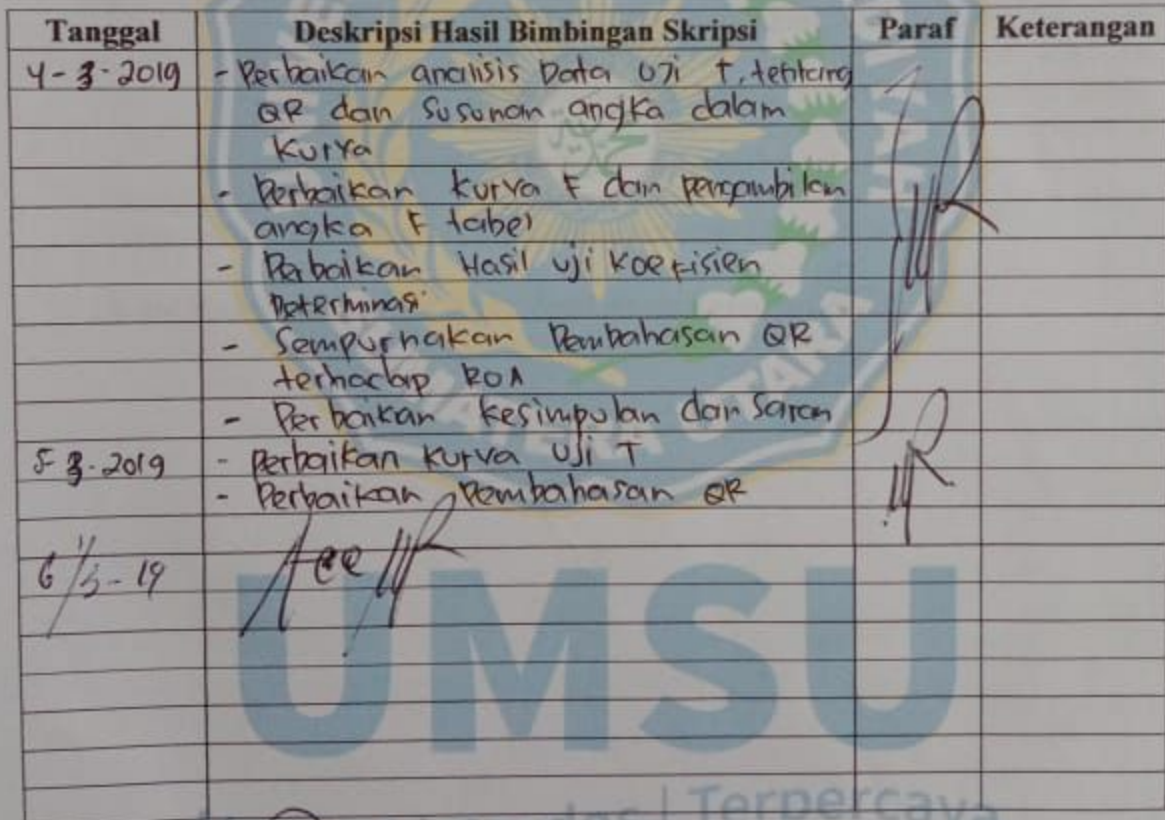 Tanggal Deskripsi Hasil Bimbingan Skripsi Paraf Keterangan
4-3-2019 - Perbaikan analisis Data Uji T, tentang
QR dan Susunan angka dalam
Kurva
- Perbaikan kurva F dan pengambilan
angka F tabel
- Perbaikan Hasil uji koefisien
Determinasi
- Sempurnakan Pembahasan QR
terhadap ROA
- Perbaikan kesimpulan dan Saran
5-3-2019 - Perbaikan kurva Uji T
- Perbaikan Pembahasan QR
6/3-19 Acc
UMSU
Terpercaya